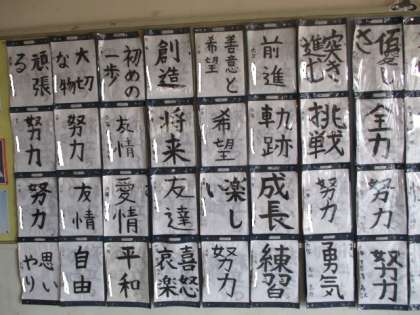 頑張
る
大切
な物
初めの
一歩
創造
善意と
希望
前進
突き
進む
努力
努力
友情
将来
希望
軌跡
挑戦
全力
努力
友情
愛情
友達
楽し
い
成長
努力
努力
思い
やり
自由
平和
喜怒
哀楽
努力
練習
勇気
努力